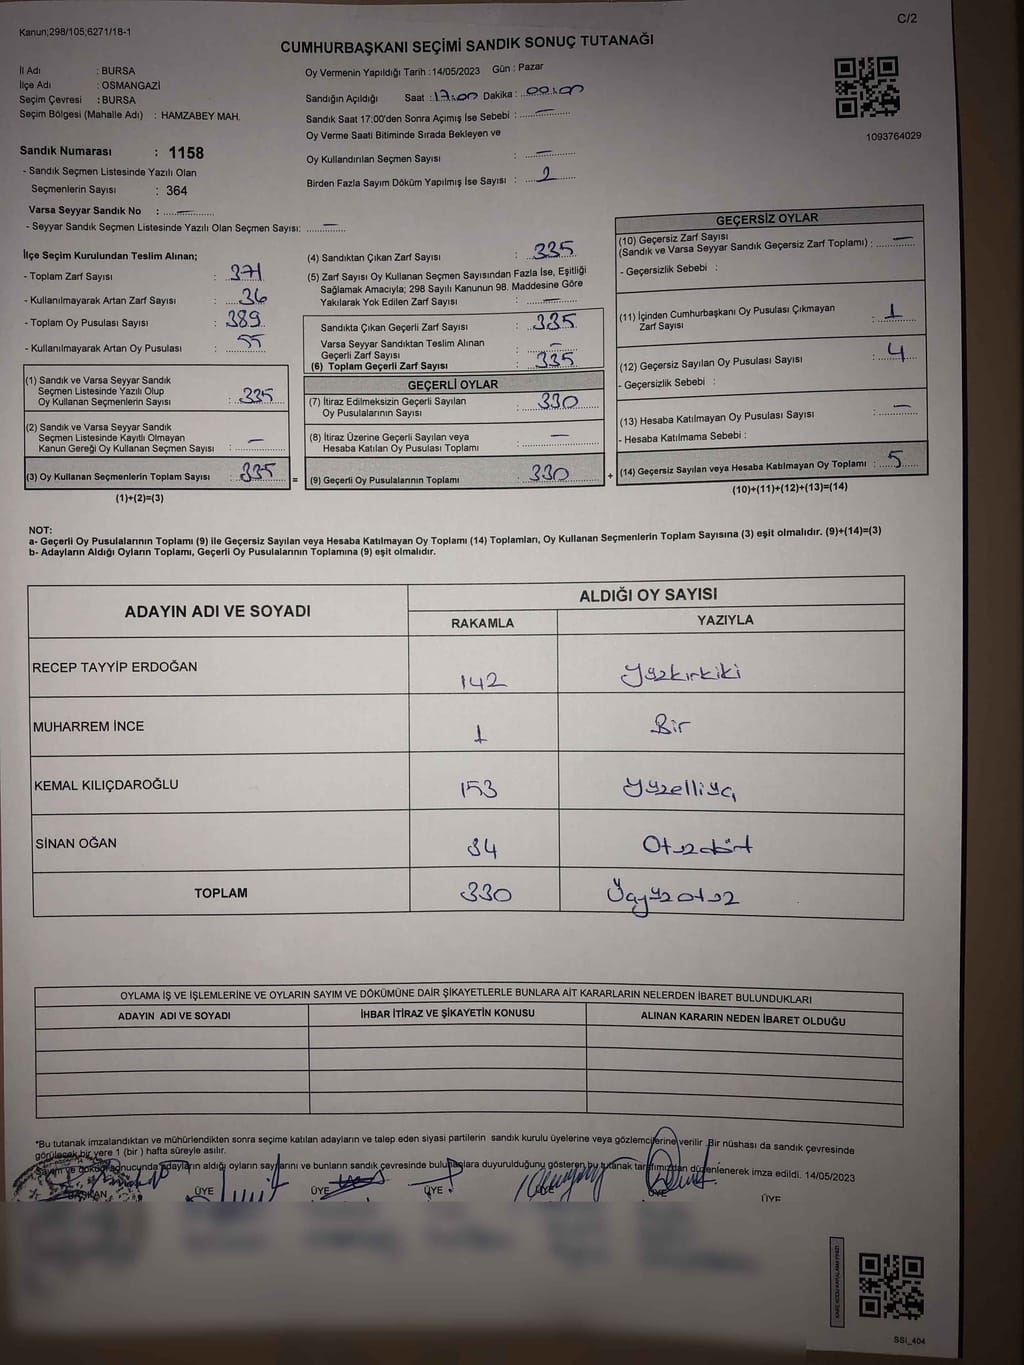 Kanun;298/105;6271/18-1
C/2
CUMHURBAŞKANI SEÇİMİ SANDIK SONUÇ TUTANAĞI
İl Adı : BURSA
İlçe Adı : OSMANGAZİ
Seçim Çevresi : BURSA
Seçim Bölgesi (Mahalle Adı) : HAMZABEY MAH.
Sandık Numarası : 1158
- Sandık Seçmen Listesinde Yazılı Olan
Seçmenlerin Sayısı : 364
Varsa Seyyar Sandık No : —
- Seyyar Sandık Seçmen Listesinde Yazılı Olan Seçmen Sayısı: —
Oy Vermenin Yapıldığı Tarih : 14/05/2023 Gün : Pazar
Sandığın Açıldığı Saat : 17:00 Dakika :
Sandık Saat 17:00'den Sonra Açımış İse Sebebi : —
Oy Verme Saati Bitiminde Sırada Bekleyen ve
Oy Kullandırılan Seçmen Sayısı : —
Birden Fazla Sayım Döküm Yapılmış İse Sayısı : 2
1093764029
İlçe Seçim Kurulundan Teslim Alınan;
- Toplam Zarf Sayısı : 371
- Kullanılmayarak Artan Zarf Sayısı : 36
- Toplam Oy Pusulası Sayısı : 389
- Kullanılmayarak Artan Oy Pusulası : 55
(1) Sandık ve Varsa Seyyar Sandık
Seçmen Listesinde Yazılı Olup
Oy Kullanan Seçmenlerin Sayısı : 335
(2) Sandık ve Varsa Seyyar Sandık
Seçmen Listesinde Kayıtlı Olmayan
Kanun Gereği Oy Kullanan Seçmen Sayısı : —
(3) Oy Kullanan Seçmenlerin Toplam Sayısı : 335
(1)+(2)=(3)
=
(4) Sandıktan Çıkan Zarf Sayısı : 335
(5) Zarf Sayısı Oy Kullanan Seçmen Sayısından Fazla İse, Eşitliği
Sağlamak Amacıyla; 298 Sayılı Kanunun 98. Maddesine Göre
Yakılarak Yok Edilen Zarf Sayısı : —
Sandıkta Çıkan Geçerli Zarf Sayısı : 335
Varsa Seyyar Sandıktan Teslim Alınan
Geçerli Zarf Sayısı : —
(6) Toplam Geçerli Zarf Sayısı : 335
GEÇERLİ OYLAR
(7) İtiraz Edilmeksizin Geçerli Sayılan
Oy Pusulalarının Sayısı : 330
(8) İtiraz Üzerine Geçerli Sayılan veya
Hesaba Katılan Oy Pusulası Toplamı : —
(9) Geçerli Oy Pusulalarının Toplamı : 330
+
GEÇERSİZ OYLAR
(10) Geçersiz Zarf Sayısı
(Sandık ve Varsa Seyyar Sandık Geçersiz Zarf Toplamı) : —
- Geçersizlik Sebebi :
(11) İçinden Cumhurbaşkanı Oy Pusulası Çıkmayan
Zarf Sayısı : 1
(12) Geçersiz Sayılan Oy Pusulası Sayısı : 4
- Geçersizlik Sebebi :
(13) Hesaba Katılmayan Oy Pusulası Sayısı : —
- Hesaba Katılmama Sebebi :
(14) Geçersiz Sayılan veya Hesaba Katılmayan Oy Toplamı : 5
(10)+(11)+(12)+(13)=(14)
NOT:
a- Geçerli Oy Pusulalarının Toplamı (9) ile Geçersiz Sayılan veya Hesaba Katılmayan Oy Toplamı (14) Toplamları, Oy Kullanan Seçmenlerin Toplam Sayısına (3) eşit olmalıdır. (9)+(14)=(3)
b- Adayların Aldığı Oyların Toplamı, Geçerli Oy Pusulalarının Toplamına (9) eşit olmalıdır.
ADAYIN ADI VE SOYADI ALDIĞI OY SAYISI
RAKAMLA YAZIYLA
RECEP TAYYİP ERDOĞAN 142 Yüzkırkiki
MUHARREM İNCE 1 Bir
KEMAL KILIÇDAROĞLU 153 Yüzelliüç
SİNAN OĞAN 34 Otuzdört
TOPLAM 330 Üçyüzotuz
OYLAMA İŞ VE İŞLEMLERİNE VE OYLARIN SAYIM VE DÖKÜMÜNE DAİR ŞİKAYETLERLE BUNLARA AİT KARARLARIN NELERDEN İBARET BULUNDUKLARI
ADAYIN ADI VE SOYADI İHBAR İTİRAZ VE ŞİKAYETİN KONUSU ALINAN KARARIN NEDEN İBARET OLDUĞU
*Bu tutanak imzalandıktan ve mühürlendikten sonra seçime katılan adayların ve talep eden siyasi partilerin sandık kurulu üyelerine veya gözlemcilerine verilir. Bir nüshası da sandık çevresinde
görülecek bir yere 1 (bir) hafta süreyle asılır.
Sayım ve döküm sonucunda adayların aldığı oyların sayılarını ve bunların sandık çevresinde bulunanlara duyurulduğunu gösteren bu tutanak tarafımızdan düzenlenerek imza edildi. 14/05/2023
BAŞKAN ÜYE ÜYE ÜYE ÜYE ÜYE ÜYE
SSI_404